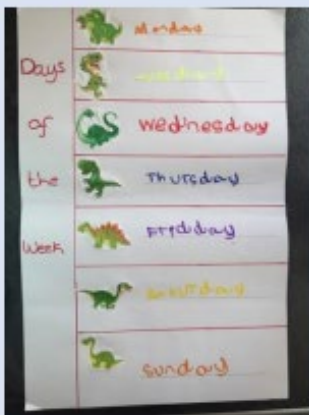 Days
of
the
Week
Monday
Wednesday
Thursday
Friday
Saturday
Sunday